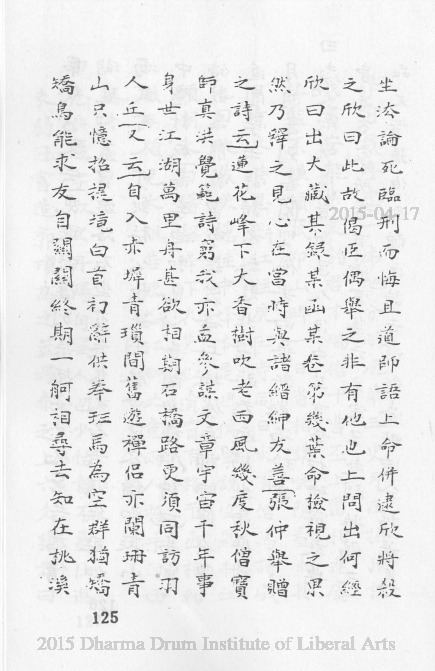 坐法論死臨刑而悔且道師語上命併逮欣將殺
之欣曰此故偈臣偶舉之非有他也上問出何經
欣曰出大藏某錄某函某卷第幾葉命撿視之果
然乃釋之見心在當時與諸縉紳友善張仲舉贈
之詩云蓮花峰下大香樹吹老西風幾度秋僧寶
師真洪覺範詩窮我亦孟參謀文章宇宙千年事
身世江湖萬里舟甚欲相期石橋路更須同訪羽
人丘又云自入赤墀青瑣間舊遊禪侶亦闌珊青
山只憶招提境白首初辭供奉班馬為空群猶矯
矯鳥能求友自關關終期一舸相尋去知在桃溪
125
2015-04-17
2015 Dharma Drum Institute of Liberal Arts